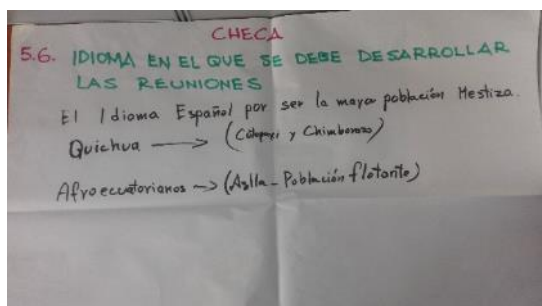 CHECA
5.6. IDIOMA EN EL QUE SE DEBE DESARROLLAR
LAS REUNIONES
El Idioma Español por ser la mayor población Mestiza.
Quichua → (Cotopaxi y Chimborazo)
Afroecuatorianos → (Aglla - Población flotante)